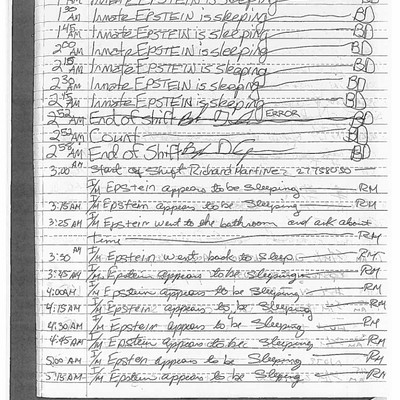 1 AM Inmate EPSTEIN is sleeping BD
1:30 AM Inmate EPSTEIN is sleeping BD
1:45 AM Inmate EPSTEIN is sleeping BD
2:00 AM Inmate EPSTEIN is sleeping BD
2:15 AM Inmate EPSTEIN is sleeping BD
2:30 AM Inmate EPSTEIN is sleeping BD
2:45 AM Inmate EPSTEIN is sleeping BD
2:52 AM End of shift ERROR BD
2:52 AM Count BD
2:58 AM End of Shift BD
3:00 AM Start of Shift Richard Martinez
I/M Epstein appears to be sleeping RM
3:15AM I/M Epstein appears to be sleeping RM
3:25 AM I/M Epstein went to the bathroom and ask about
time RM
3:30 AM I/M Epstein went back to sleep RM
3:45AM I/M Epstein appears to be sleeping RM
4:00AM I/M Epstein appears to be sleeping RM
4:15AM I/M Epstein appears to be sleeping RM
4:30AM I/M Epstein appears to be sleeping RM
4:45AM I/M Epstein appears to be sleeping RM
5:00 AM I/M Epstein appears to be sleeping RM
5:15AM I/M Epstein appears to be sleeping RM